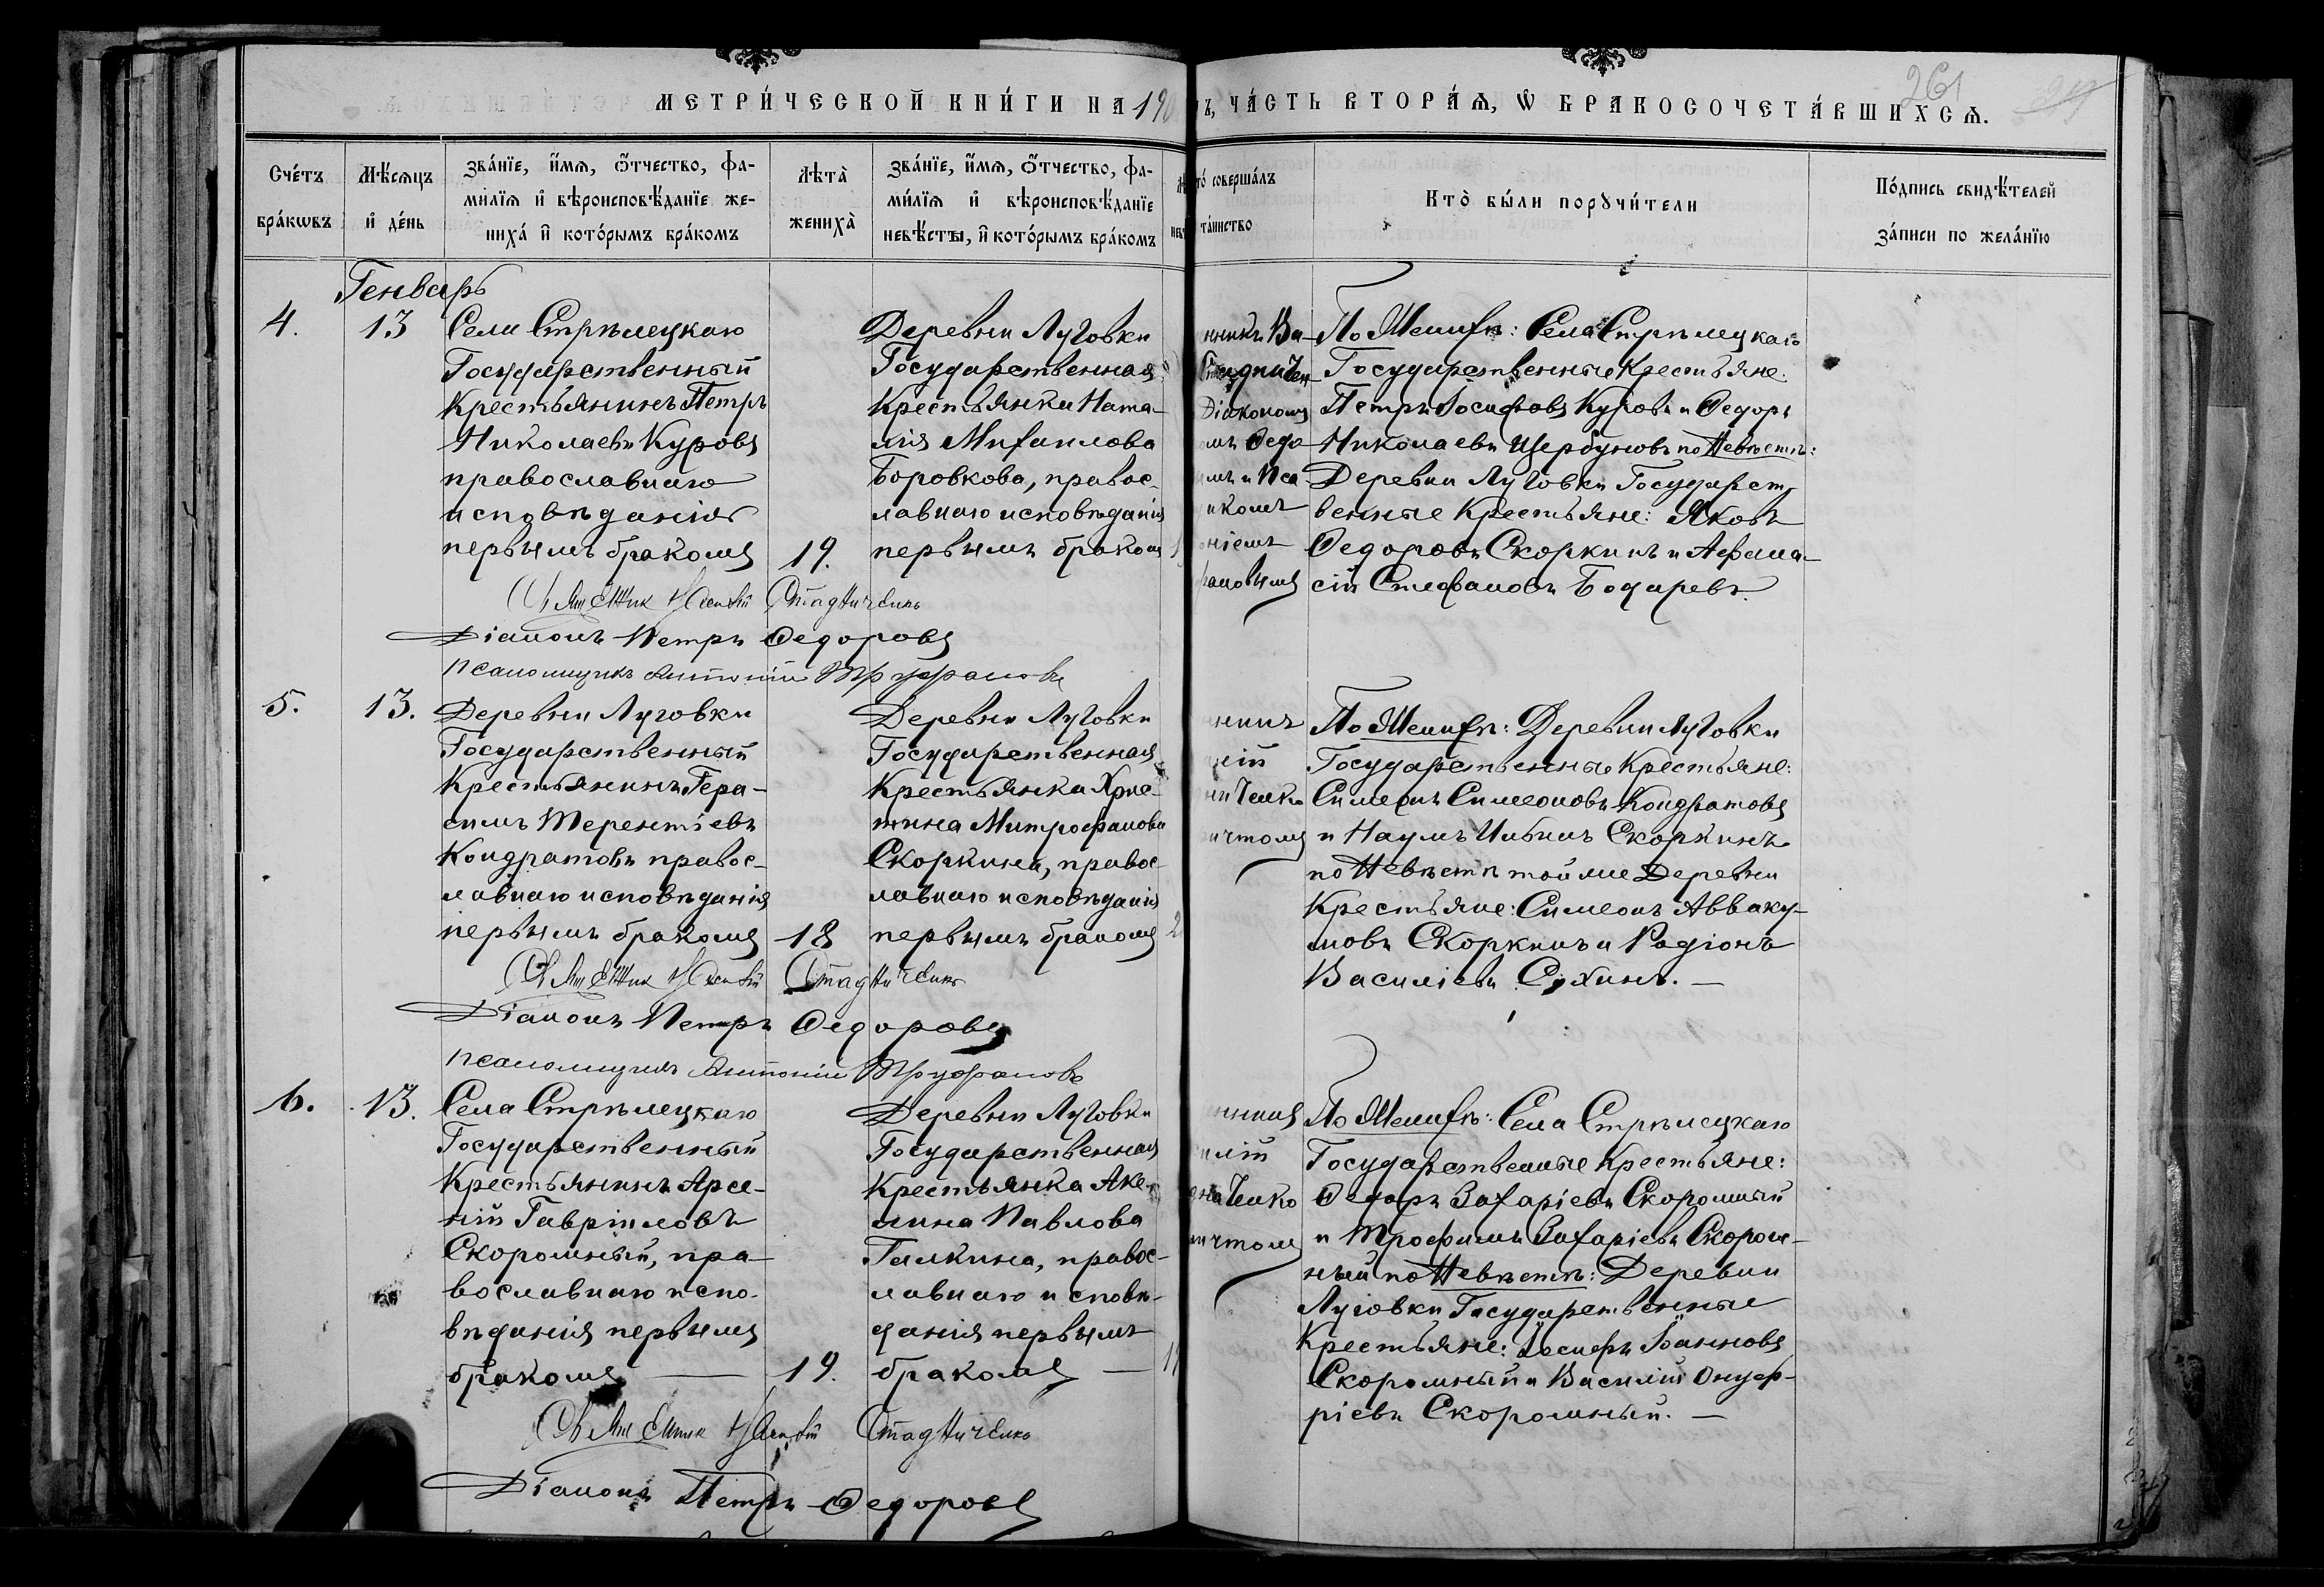 МЕТРИ́ЧЕСКОЙ КНИ́ГИ НА 190
Ъ, ЧА́СТЬ ВТОРА́Ѧ, Ѡ БРАКОСОЧЕТА́ВШИХСѦ.
261
Сче́тъ бра́кѡвъ
Мѣ́сѧцъ и҆ де́нь
Зва́нїе, и҆́мѧ, ѻ҆́тчество, фа-
ми́лїѧ и҆ вѣроисповѣ́данїе же-
ниха́ и҆ кото́рымъ бра́комъ
Лѣта̀ жениха̀
Зва́нїе, и҆́мѧ, ѻ҆́тчество, фа-
ми́лїѧ и҆ вѣроисповѣ́данїе
невѣ́сты, и҆ кото́рымъ бра́комъ
то̀ соверша́лъ
та́инство
Кто̀ бы́ли порꙋчи́тели
По́дпись свидѣ́телей
за́писи по жела́нїю
Генварь
4.
13
Села Стрѣлецкаго
Государственный
Крестьянинъ Петръ
Николаевъ Куровъ
православнаго
исповѣданія
первымъ бракомъ
19.
Деревни Луговки
Государственная
Крестьянка Ната-
лія Михаилова
Боровкова, правос-
лавнаго исповѣданія
первымъ бракомъ
нникъ Ва-
Стадничен
Діакономъ
мъ Ѳедо
мъ и Пса
икомъ
оніемъ
фановымъ
По Женихѣ: Села Стрѣлецкаго
Государственные Крестьяне:
Петръ Іосифовъ Куровъ и Ѳедоръ
Николаевъ Щербуновъ по Невѣстѣ:
Деревни Луговки Государст-
венные Крестьяне: Яковъ
Ѳедоровъ Скоркинъ и Аѳана-
сій Стефановъ Бодаревъ.
Священник Василій Стадниченко
Діаконъ Петръ Ѳедоровъ
псаломщикъ Антоній Труфановъ
5.
13.
Деревни Луговки
Государственный
Крестьянинъ Гера-
симъ Терентіевъ
Кондратовъ правос-
лавнаго исповѣданія
первымъ бракомъ
18
Деревни Луговки
Государственная
Крестьянка Хрис-
тина Митрофанова
Скоркина, правос-
лавнаго исповѣданія
первымъ бракомъ
2
нникъ
лій
ниченко
ичтомъ
По Женихѣ: Деревни Луговки
Государственные Крестьяне:
Симеонъ Симеоновъ Кондратовъ
и Наумъ Ивановъ Скоркинъ
по Невѣстѣ той же Деревни
Крестьяне: Симеонъ Авваку-
мовъ Скоркинъ и Родіонъ
Василіевъ Сухинъ. —
Священник Василій Стадниченко
Діаконъ Петръ Ѳедоровъ
псаломщикъ Антоній Труфановъ
6.
13.
Села Стрѣлецкаго
Государственный
Крестьянинъ Арсе-
ній Гавріиловъ
Скоромный, пра-
вославнаго испо-
вѣданія первымъ
бракомъ —
19.
Деревни Луговки
Государственная
Крестьянка Аку-
лина Павлова
Галкина, правос-
лавнаго исповѣ-
данія первымъ
бракомъ —
нникъ
илій
ниченко
ичтомъ
По Женихѣ: Села Стрѣлецкаго
Государственные Крестьяне:
Ѳедоръ Захаріевъ Скоромный
и Трофимъ Захаріевъ Скором-
ный по Невѣстѣ: Деревни
Луговки Государственные
Крестьяне: Іосифъ Іоанновъ
Скоромный и Василій Онуф-
ріевъ Скоромный. —
Священник Василій Стадниченко
Діаконъ Петръ Ѳедоровъ